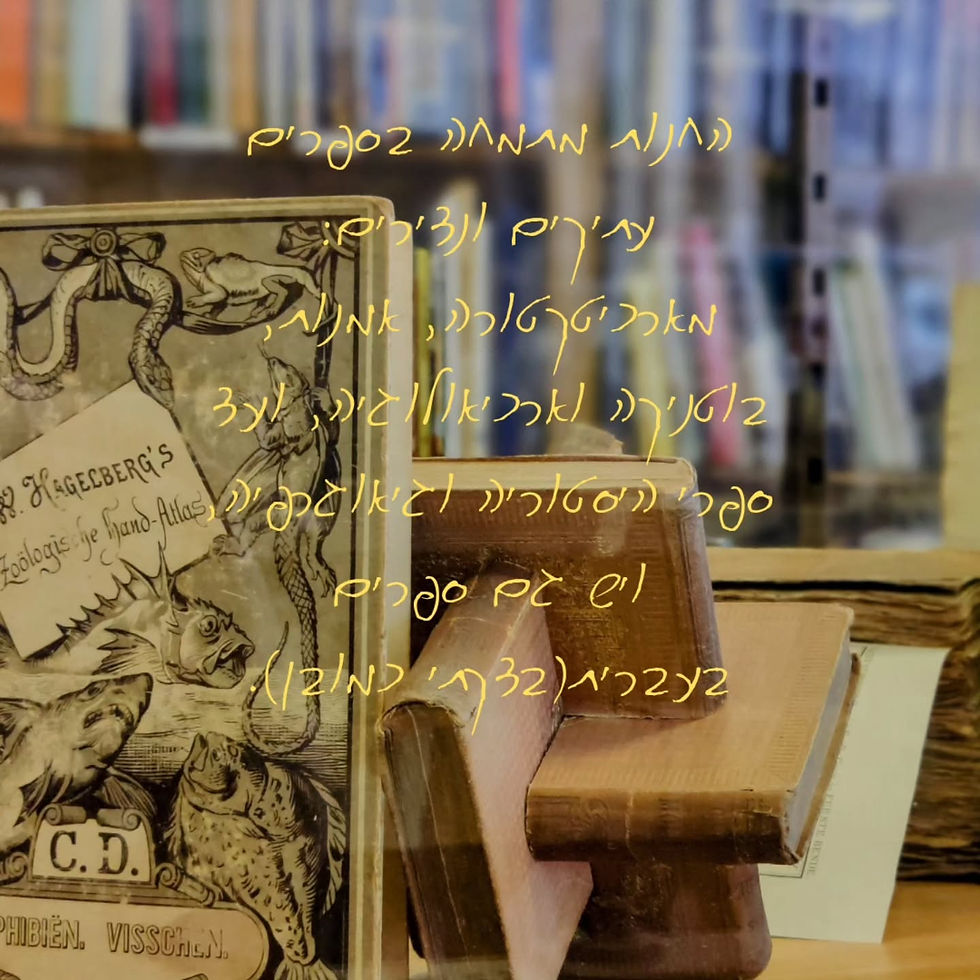 החנות מתמחה בספרים
עתיקים ונדירים:
מארכיטקטורה, אמנות,
בוטניקה וארכיאולוגיה, ועד
ספרי היסטוריה וגיאוגרפיה,
ויש גם ספרים
בעברית(בדקתי כמובן).
W. HAGELBERG'S
Zoölogische Hand-Atlas
C. D.
PHIBIËN. VISSCHEN.